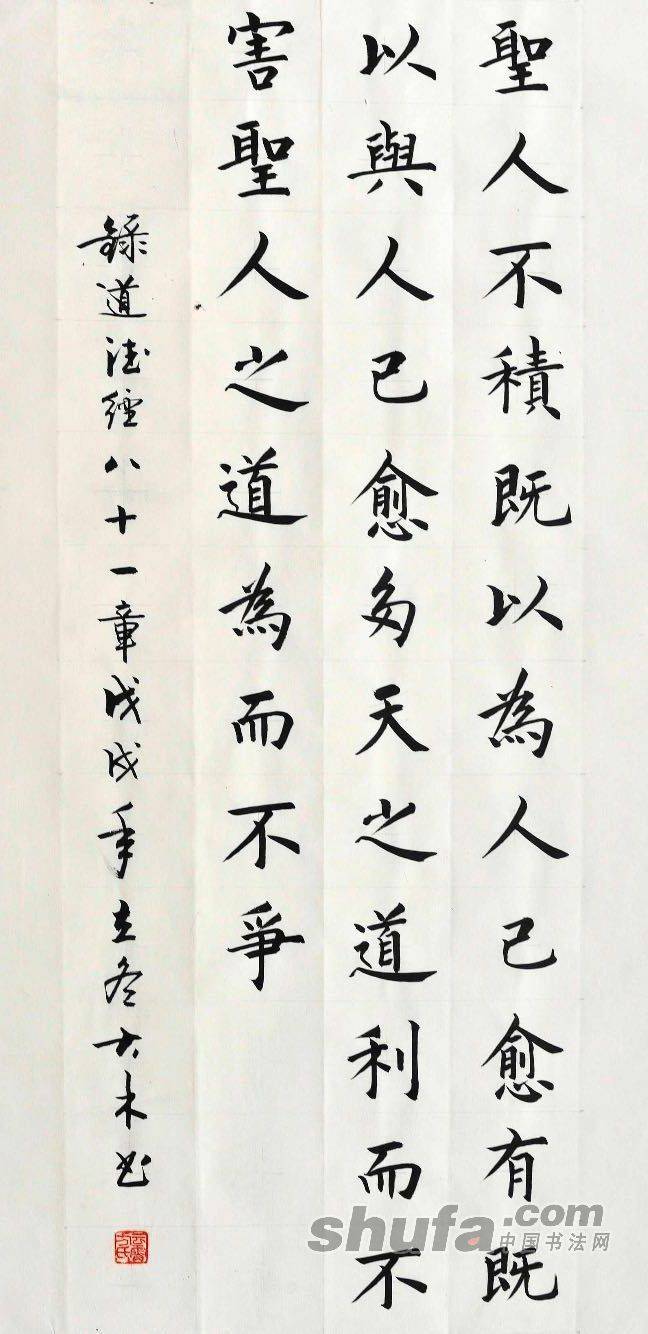 聖人不積既以為人己愈有既
以與人己愈多天之道利而不
害聖人之道為而不爭
錄道德經八十一章戊戌年立冬大木书
shufa.com
中国书法网